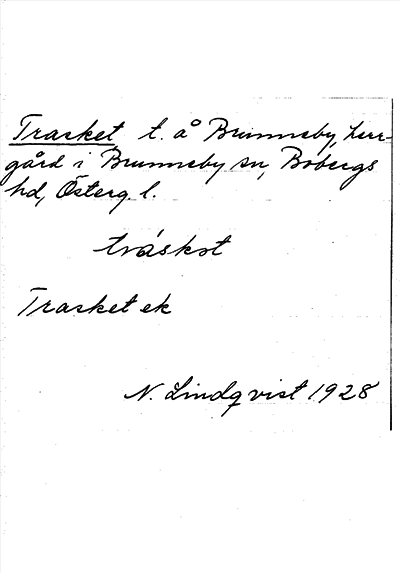 Trasket t. å Brunneby, herr-
gård i Brunneby sn, Bobergs
hd, Österg. l.
tráskɘt
Trasket ek
N. Lindqvist 1928